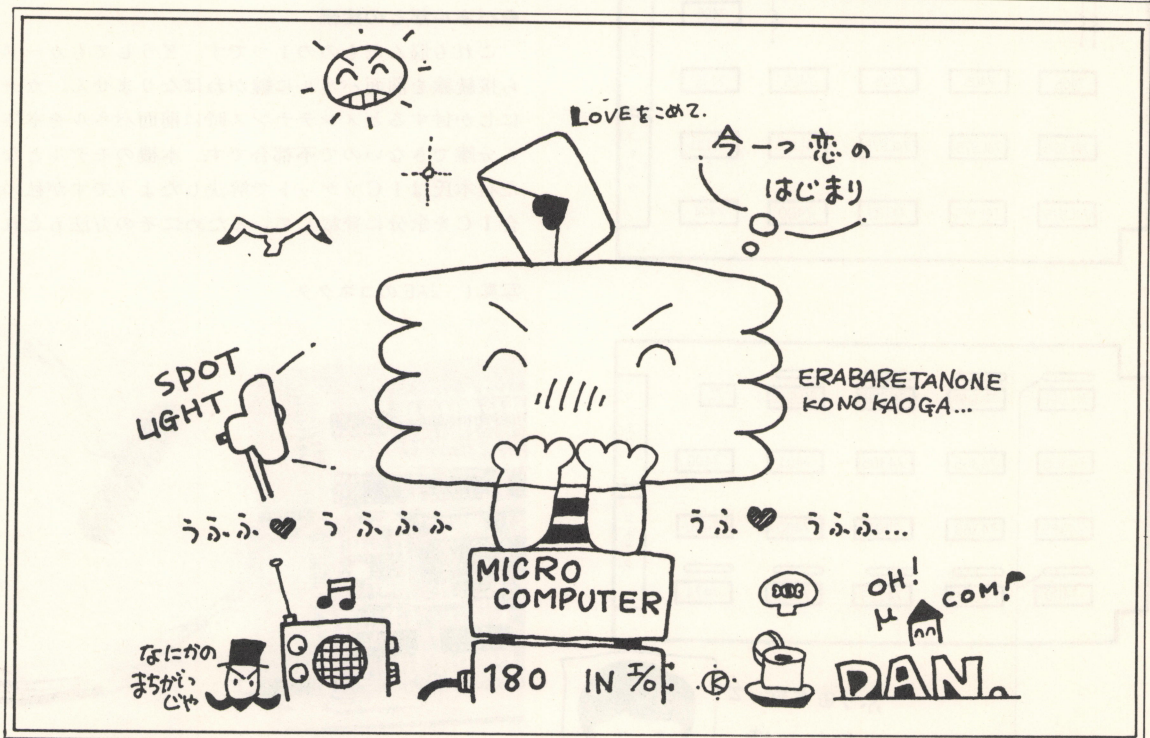 LOVEをこめて.
今一つ恋の
はじまり
SPOT
LIGHT
ERABARETANONE
KONOKAOGA...
うふ.ふ♥う.ふ.ふ.ふ
うふ.♥うふふ...
MICRO
COMPUTER
OH!
μ COM!
なにかの
まちがい
じゃ
180 IN I/O; K
DAN.